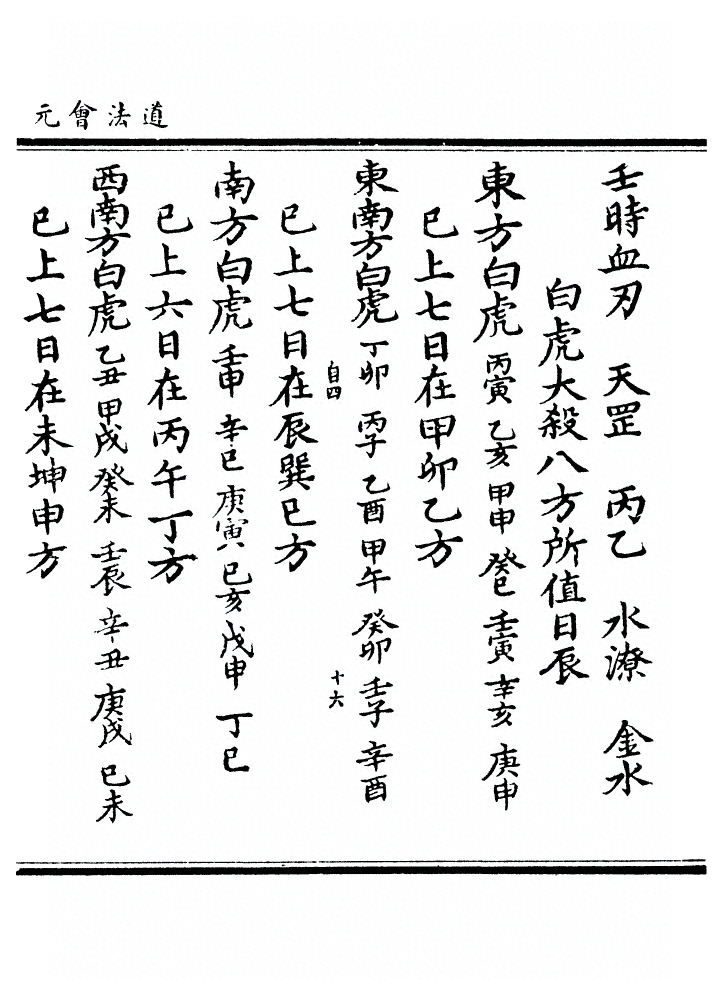 道法會元
壬時血刃　天罡　丙乙　水潦　金水
白虎大殺八方所值日辰
東方白虎 丙寅 乙亥 甲申 癸巳 壬寅 辛亥 庚申
已上七日在甲卯乙方
東南方白虎 丁卯 丙子 乙酉 甲午 癸卯 壬子 辛酉
自四　十六
已上七日在辰巽巳方
南方白虎 壬申 辛巳 庚寅 己亥 戊申 丁巳
已上六日在丙午丁方
西南方白虎 乙丑 甲戌 癸未 壬辰 辛丑 庚戌 己未
已上七日在未坤申方